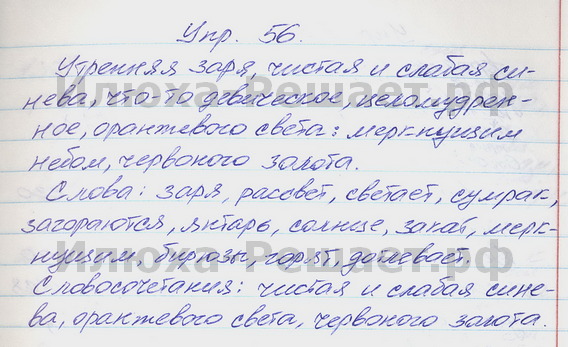 Упр. 56.
Утренняя заря, чистая и слабая си-
нева, что-то девическое, целомудрен-
ное, оранжевого света: меркнущим
небом, червоного золота.
Слова: заря, рассвет, светает, сумрак,
загораются, янтарь, солнце, закат, мерк-
нущим, бирюзы, горят, дотлевает.
Словосочетания: чистая и слабая сине-
ва, оранжевого света, червоного золота.
Илюха-Решает.рф
Илюха-Решает.рф